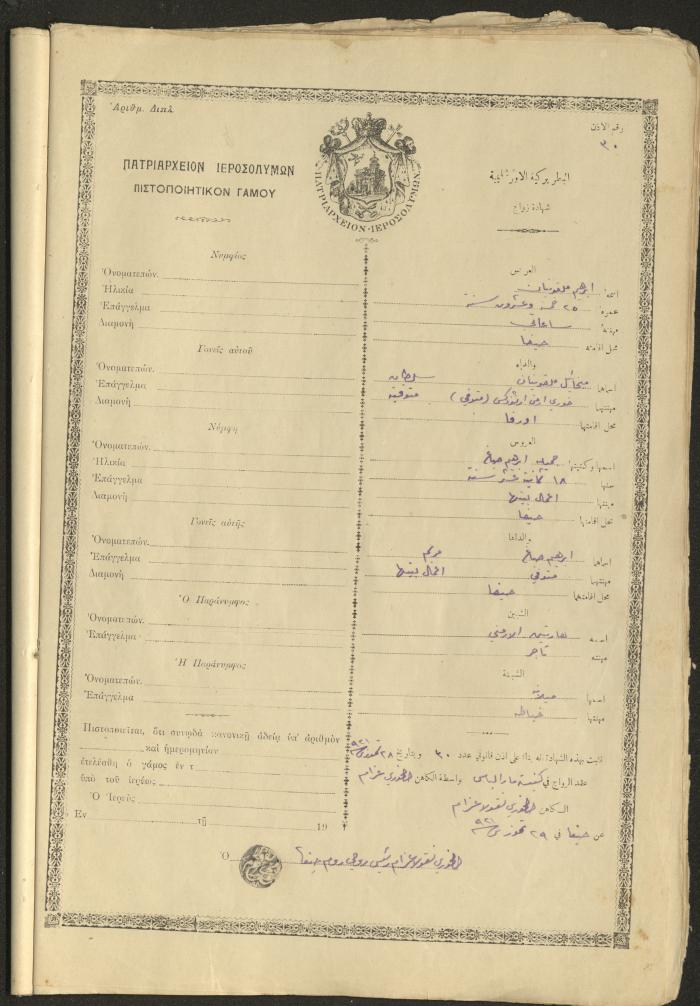 Ἀριθμ. Διπλ.
ΠΑΤΡΙΑΡΧΕΙΟΝ ΙΕΡΟΣΟΛΥΜΩΝ
ΠΙΣΤΟΠΟΙΗΤΙΚΟΝ ΓΑΜΟΥ
Νυμφίος
Ὀνοματεπών.
Ἡλικία
Ἐπάγγελμα
Διαμονή
Γονεῖς αὐτοῦ
Ὀνοματεπών.
Ἐπάγγελμα
Διαμονή
Νύμφη
Ὀνοματεπών.
Ἡλικία
Ἐπάγγελμα
Διαμονή
Γονεῖς αὐτῆς
Ὀνοματεπών.
Ἐπάγγελμα
Διαμονή
Ὁ Παράνυμφος
Ὀνοματεπών.
Ἐπάγγελμα
Ἡ Παράνυμφος
Ὀνοματεπών.
Ἐπάγγελμα
Πιστοποιεῖται, ὅτι συνῳδὰ κανονικῇ ἀδείᾳ ὑπ' ἀριθμὸν
καὶ ἡμερομηνίαν
ἐτελέσθη ὁ γάμος ἐν τ
ὑπὸ τοῦ ἱερέως
Ὁ Ἱερεὺς
Ἐν τῇ 19
Ὁ
ΠΑΤΡΙΑΡΧΕΙΟΝ·ΙΕΡΟΣΟΛΥΜΩΝ
رقم الاذن
٣٠
البطريركية الاورشليمية
شهادة زواج
العريس
اسمه ابرهيم
عمره ٢٥ خمسة وعشرون سنة
مهنته ساعاتي
محل اقامته حيفا
والداه
اسماها
مهنتهما خوري (متوفي) متوفية
محل اقامتهما اورفا
العروس
اسمها وكنيتها جميله ابرهيم
سنها ١٨ ثمانية عشر سنة
مهنتها اعمال بيتها
محل اقامتها حيفا
والداها
اسماها ابرهيم مريم
مهنتهما متوفي اعمال بيتها
محل اقامتهما حيفا
الشبين
اسمه
مهنته تاجر
الشبينة
اسمها
مهنتها خياطه
ثابت بهذه الشهادة انه بناء على اذن قانوني عدد ٣٠ وبتاريخ ٢٨ تموز سنة ٩٢١
عقد الزواج في كنيسة مار الياس بواسطة الكاهن الخوري نقولا عزام
الكاهن الخوري نقولا عزام
عن حيفا في ٢٩ تموز سنة ٩٢١
الخوري نقولا عزام رئيس روحي روم حيفا